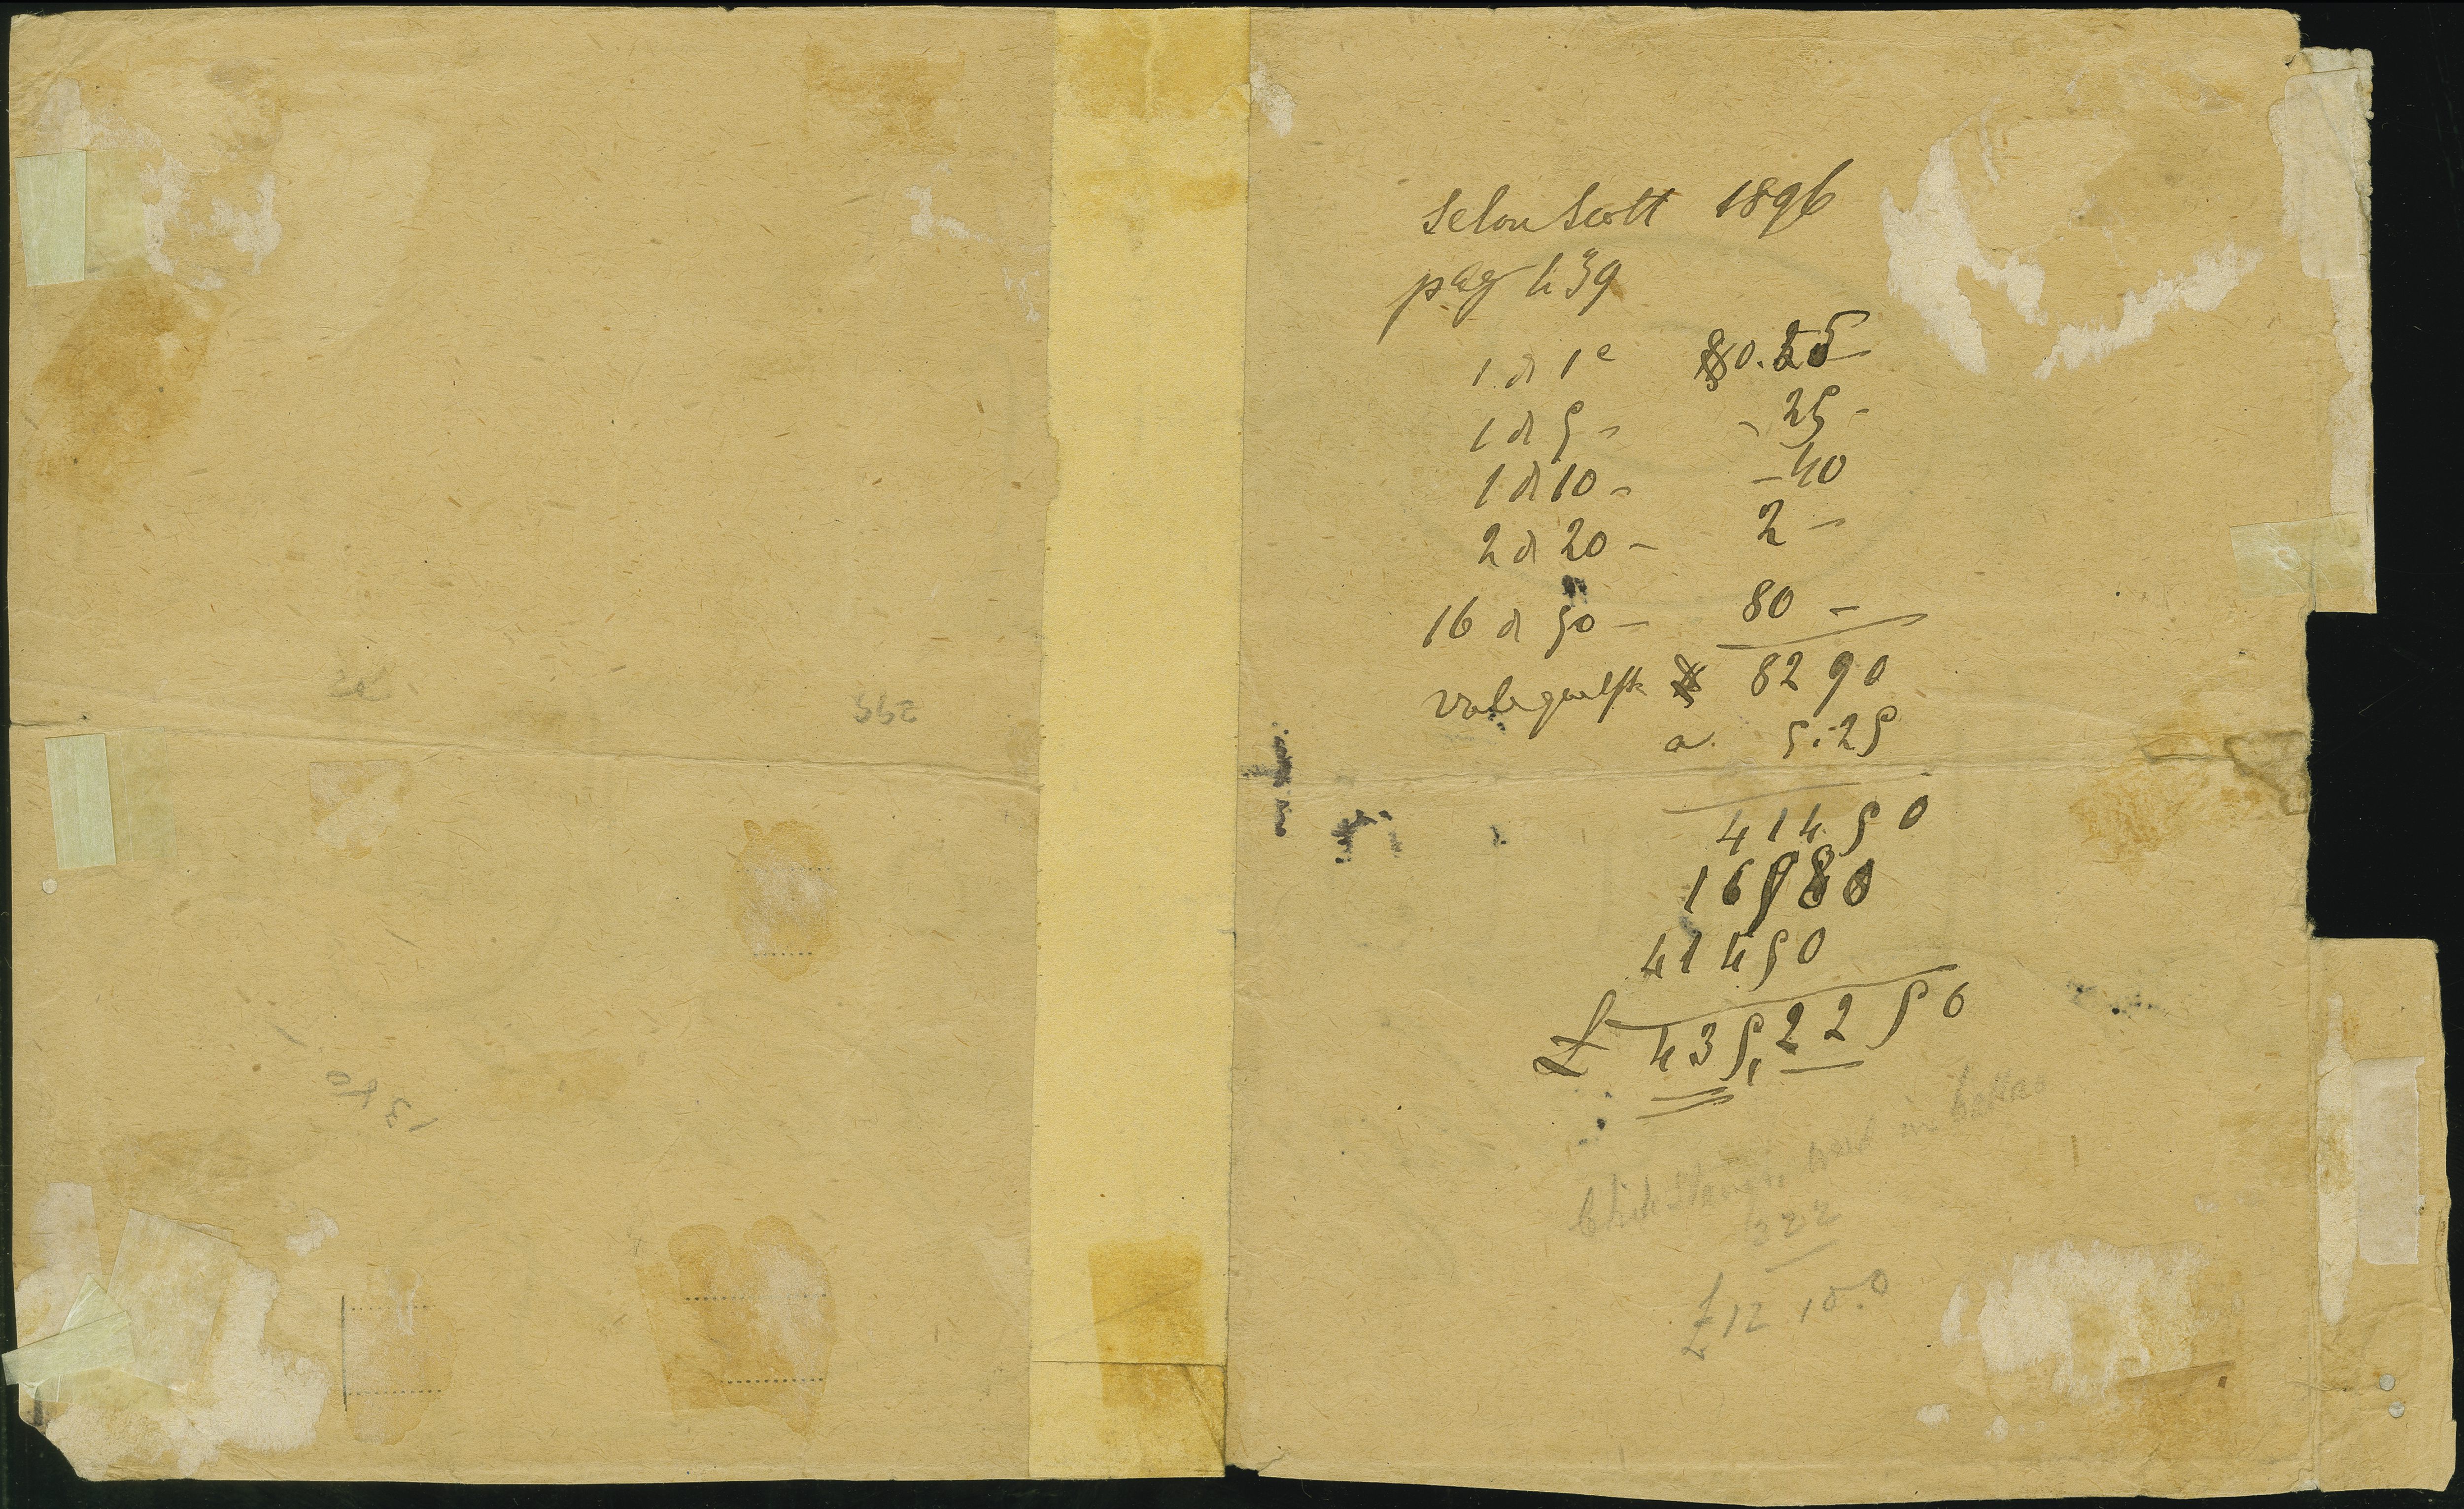 Selon Scott 1896
pag 439
1 d 1c $0.25
1 d 5 - - 25 -
1 d 10 - - 40
2 d 20 - 2 -
16 d 50 - 80 -
$ 82 90
a. 5.25
414 50
16580
41450
£ 435,2250
in
322
£12 10.0
295
1350